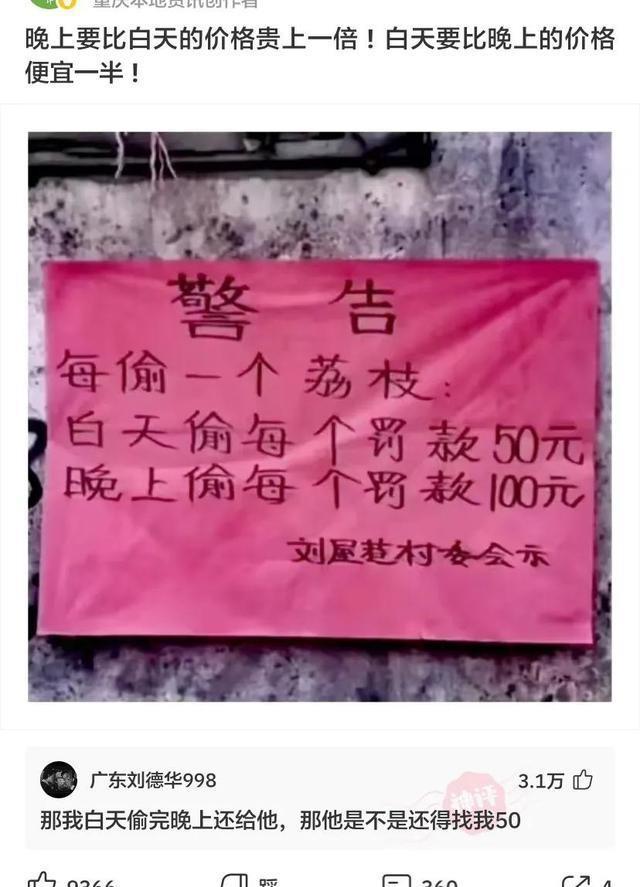 重庆本地资讯创作者
晚上要比白天的价格贵上一倍！白天要比晚上的价格
便宜一半！
警 告
每偷一个荔枝：
白天偷每个罚款50元
晚上偷每个罚款100元
刘屋莛村委会示
广东刘德华998
3.1万
神评
那我白天偷完晚上还给他，那他是不是还得找我50
9366
踩
360